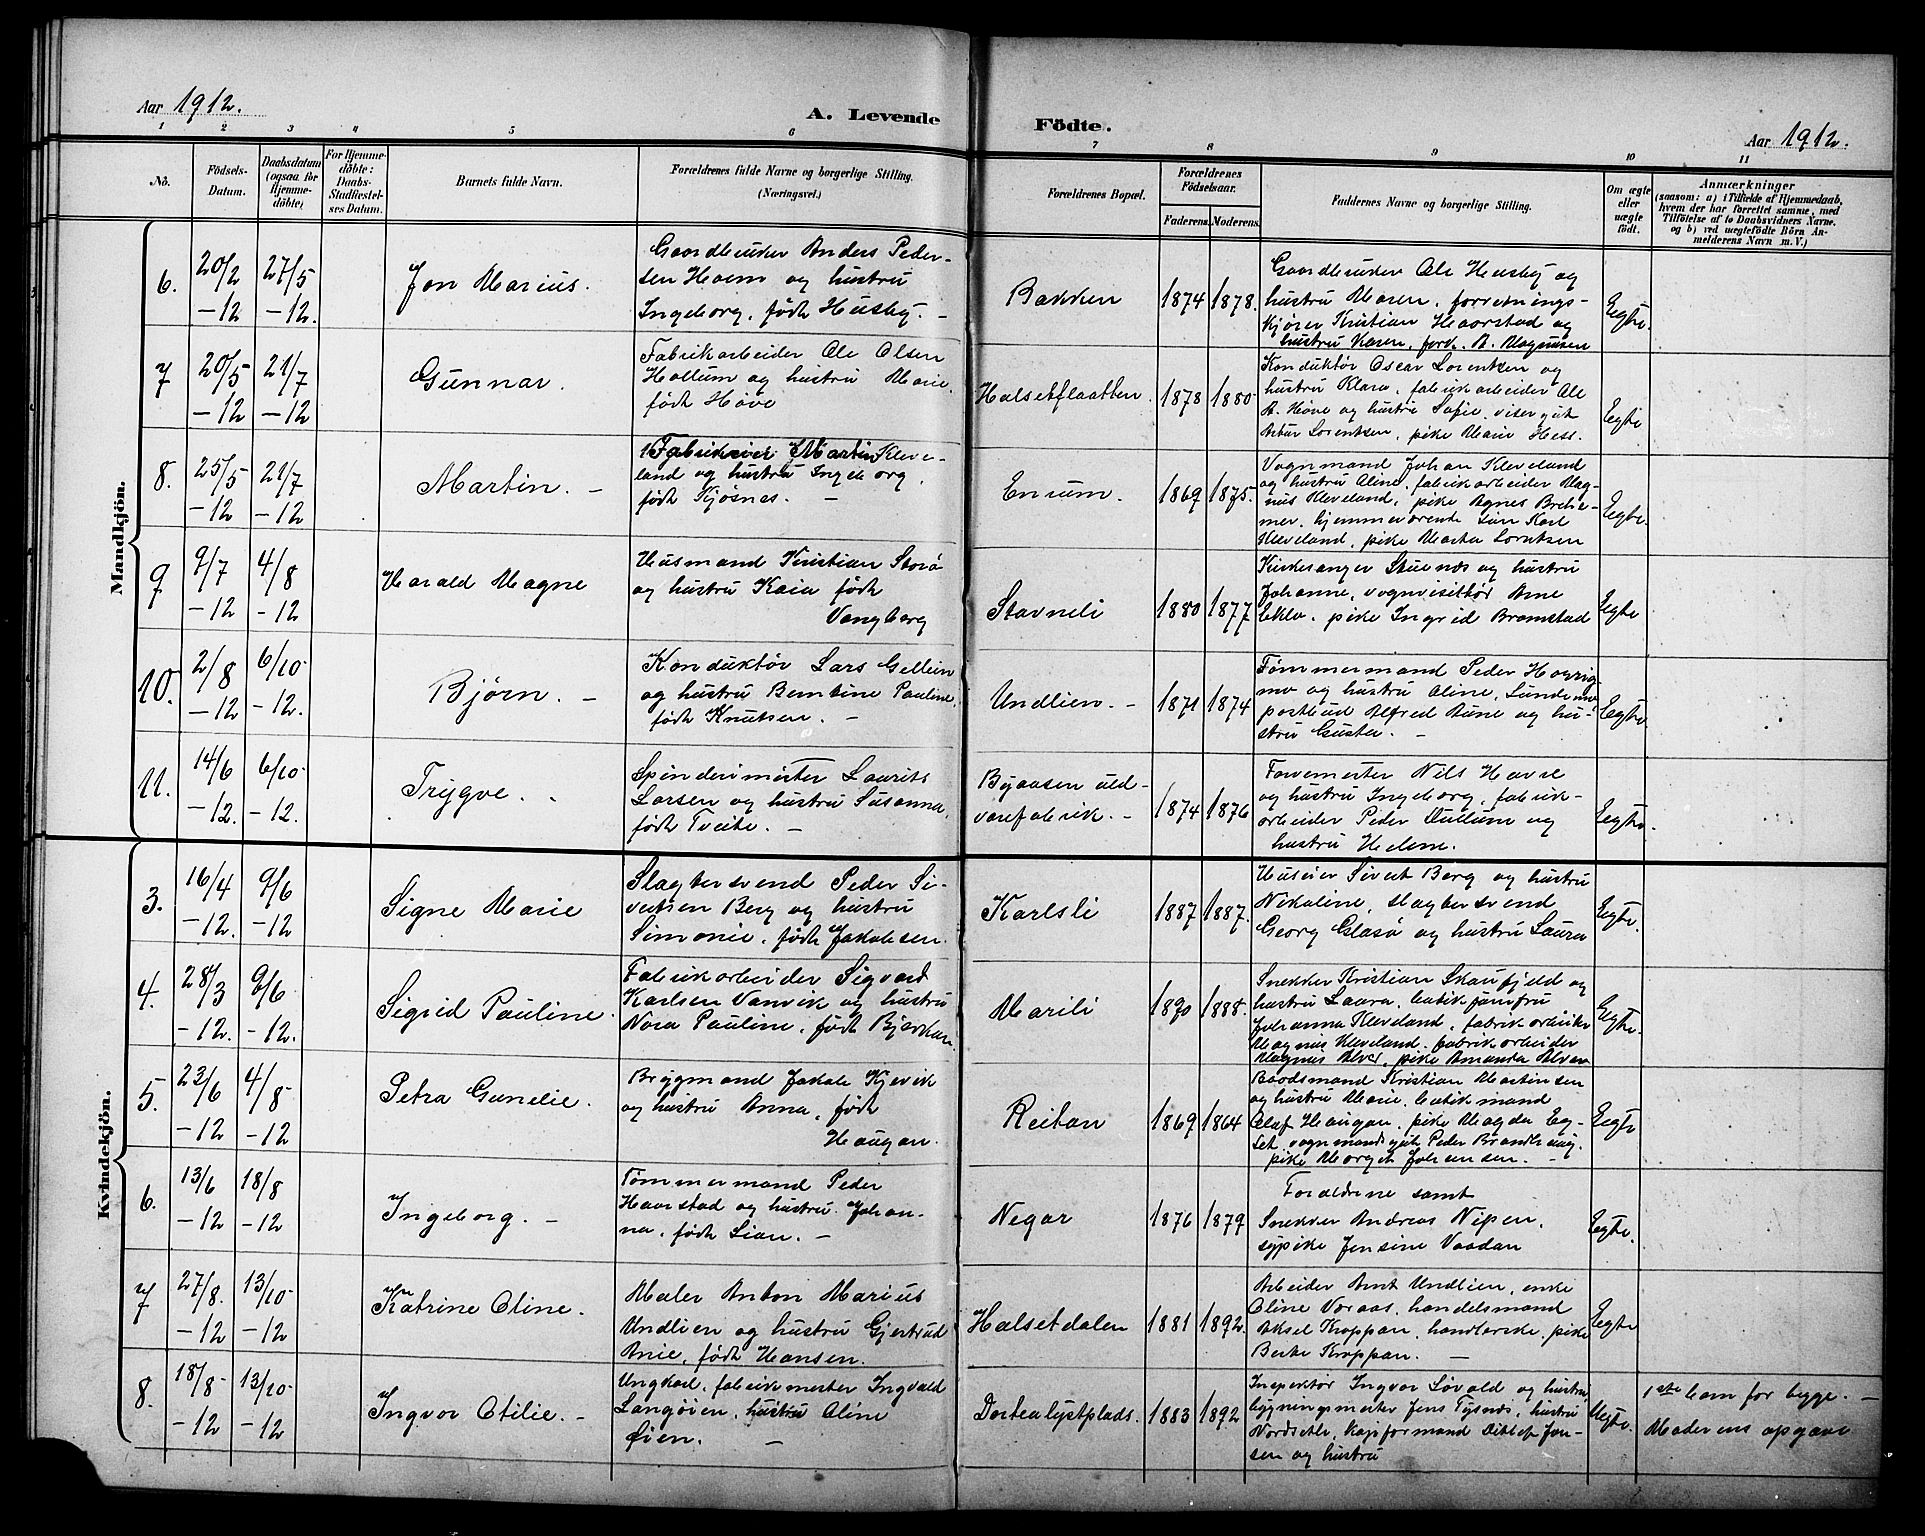 Aar 1912.
A. Levende Födte.
Aar 1912.
1 2 3 4 5 6 7 8 9 10 11
Nö.
Födsels-
Datum.
Daabsdatum
(ogsaa for
Hjemme-
döbte)
For Hjemme-
döbte:
Daabs-
Stadfestel-
ses Datum.
Barnets fulde Navn.
Forældrenes fulde Navne og borgerlige Stilling.
(Næringsvei.)
Forældrenes Bopæl.
Forældrenes
Födselsaar.
Faderens. Moderens.
Faddernes Navne og borgerlige Stilling.
Om ægte
eller
uægte
födt.
Anmærkninger
(saasom: a) i Tilfælde af Hjemmedaab,
hvem der har forrettet samme, med
Tilföielse af to Daabsvidners Navne.
og b) ved uægtefödte Börn An-
melderens Navn m. V.)
Mandkjön.
6.
20/2
-12
27/5
-12.
Jon Marius.
Gaardbruker Anders Peder-
sen Hoem og hustru
Ingeborg, født Husby. -
Bakken
1874 1878.
Gaardbruker Ole Husby og
hustru Maren, forretnings-
kjører Kristian Haarstad og
hustru Karen, fork. A. Magnussen
Egte.
7
20/5
-12
21/7
-12
Gunnar.
Fabrikarbeider Ole Olsen
Hollum og hustru Marie,
født Høve
Halsetflaatten.
1878 1880
Konduktør Oscar Lorentsen og
hustru Klara, fabrikarbeider Ole
A. Høve og hustru Sofie, visergut
Artur Lorentsen, pike Marie Hess.
Egte
8.
25/5
-12
21/7
-12
Martin. -
Martin Kleve-
land og hustru Ingeborg,
født Kjøsnes. -
Enrum.
1869 1875.
Vognmand Johan Kleveland
og hustru Aline, fabrikarbeider Mag-
nus Kleveland, pike Agnes Brekke-
mer, hjemmeværende søn Karl
Kleveland, pike Marta Lorntsen
Egte.
9
9/7
-12
4/8
-12
Harald Magne
Husmand Kristian Storø
og hustru Kaia født
Vangberg
Stavneli
1880 1877
Kirkesanger Stuenæs og hustru
Johanne, vognvisitør Arne
Eklo, pike Ingrid Bromstad
Egte
10.
2/8
-12
6/10
-12.
Bjørn. -
Konduktør Lars Gellein
og hustru Berntine Pauline,
født Knutsen. -
Undlien. -
1871 1874
Tømmermand Peder
mo og hustru Aline, Lundemo
postbud Alfred Aune og hu-
stru Gusta. -
Egte.
11.
14/6
-12.
6/10
-12.
Trygve.
Spinderimester Laurits
Larsen og hustru Susanna,
født Tveite. -
Byaasen uld-
varefabrik. -
1874 1876
Farvemester Nils Havre
og hustru Ingeborg, fabrik-
arbeider Peder Dullum og
hustru Helene.
Egte.
Kvindekjön.
3.
16/4
-12.
9/6
-12
Signe Marie
Slagtersvend Peder Si-
vertsen Berg og hustru
Simonie, født Jakobsen.
Karlsli
1887 1887.
Huseier Sivert Berg og hustru
Nikoline, slagtersvend
Georg Glasø og hustru Laura
Egte.
4.
28/3
-12.
9/6
-12.
Sigrid Pauline.
Fabrikarbeider Sigvard
Karlsen Vanvik og hustru
Nora Pauline, født Bjerkan.
Marili
1890 1888.
Snekker Kristian Skaufjeld og
hustru Laura, butikjomfru
Johanna Kleveland, fabrikarbeider
Magnus Kleveland, fabrikarbeider
Magnus Alver, pike Amanda Alver
Egte.
5.
23/6
-12
4/8
-12
Petra Gunelie.
Brygmand Jakob Kjevik
og hustru Anna, født
Haugan.
Reitan
1869 1864
Baadsmand Kristian Martinsen
og hustru Marie, butikmand
Olaf Haugan, pike Magda Eg-
set, vognmandsgut Peder Brandhaug,
pike Margit Johansen. -
Egte
6.
13/6
-12
18/8
-12
Ingeborg. -
Tømmermand Peder
Haarstad og hustru Johan-
na, født Lian. -
Negar
1876 1879
Forældrene samt
Snekker Andreas Nipen,
sypike Jensine Vaadan
Egte.
7
27/8.
-12
13/10
-12
Katrine Oline.
Maler Anton Marius
Undlien og hustru Gjertrud
Anie, født Hansen.
Halsetdalen
1881 1892.
Arbeider Arnt Undlien, enke
Oline Voraas, handelsmand
Aksel Kroppan, handlerske, pike
Berte Kroppan. -
Egte
8.
18/8
-12
13/10
-12
Ingvor Otilie. -
Ungkarl, fabrikmester Ingvald
Langøien, hustru Oline
Øien. -
Dortealystplads.
1883 1892
Inspektør Ingvor Løvold og hustru
bygningsmester Jens Tysnes, hustru
Nordsetle, kapformand Ditlef Jen-
sen og hustru
Uegte.
1ste barn for begge. -
Moderens opgave